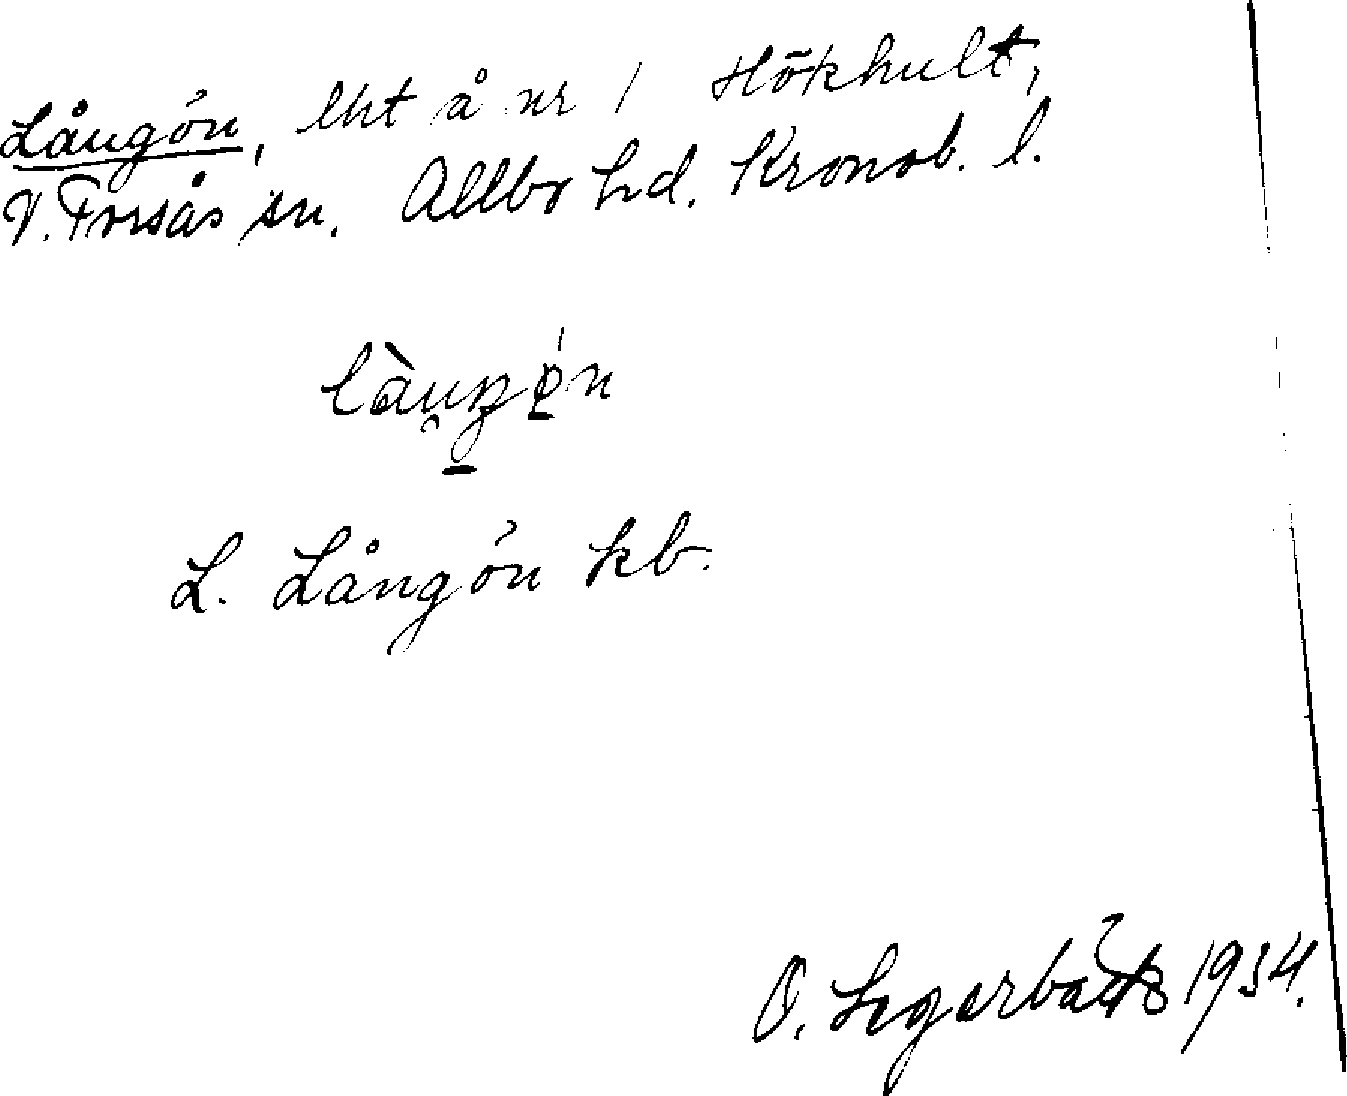 Långön, lht å nr 1 Hökhult,
V. Torsås sn. Allbo hd. Kronob. l.
L. Långön kb.
O. 1934.